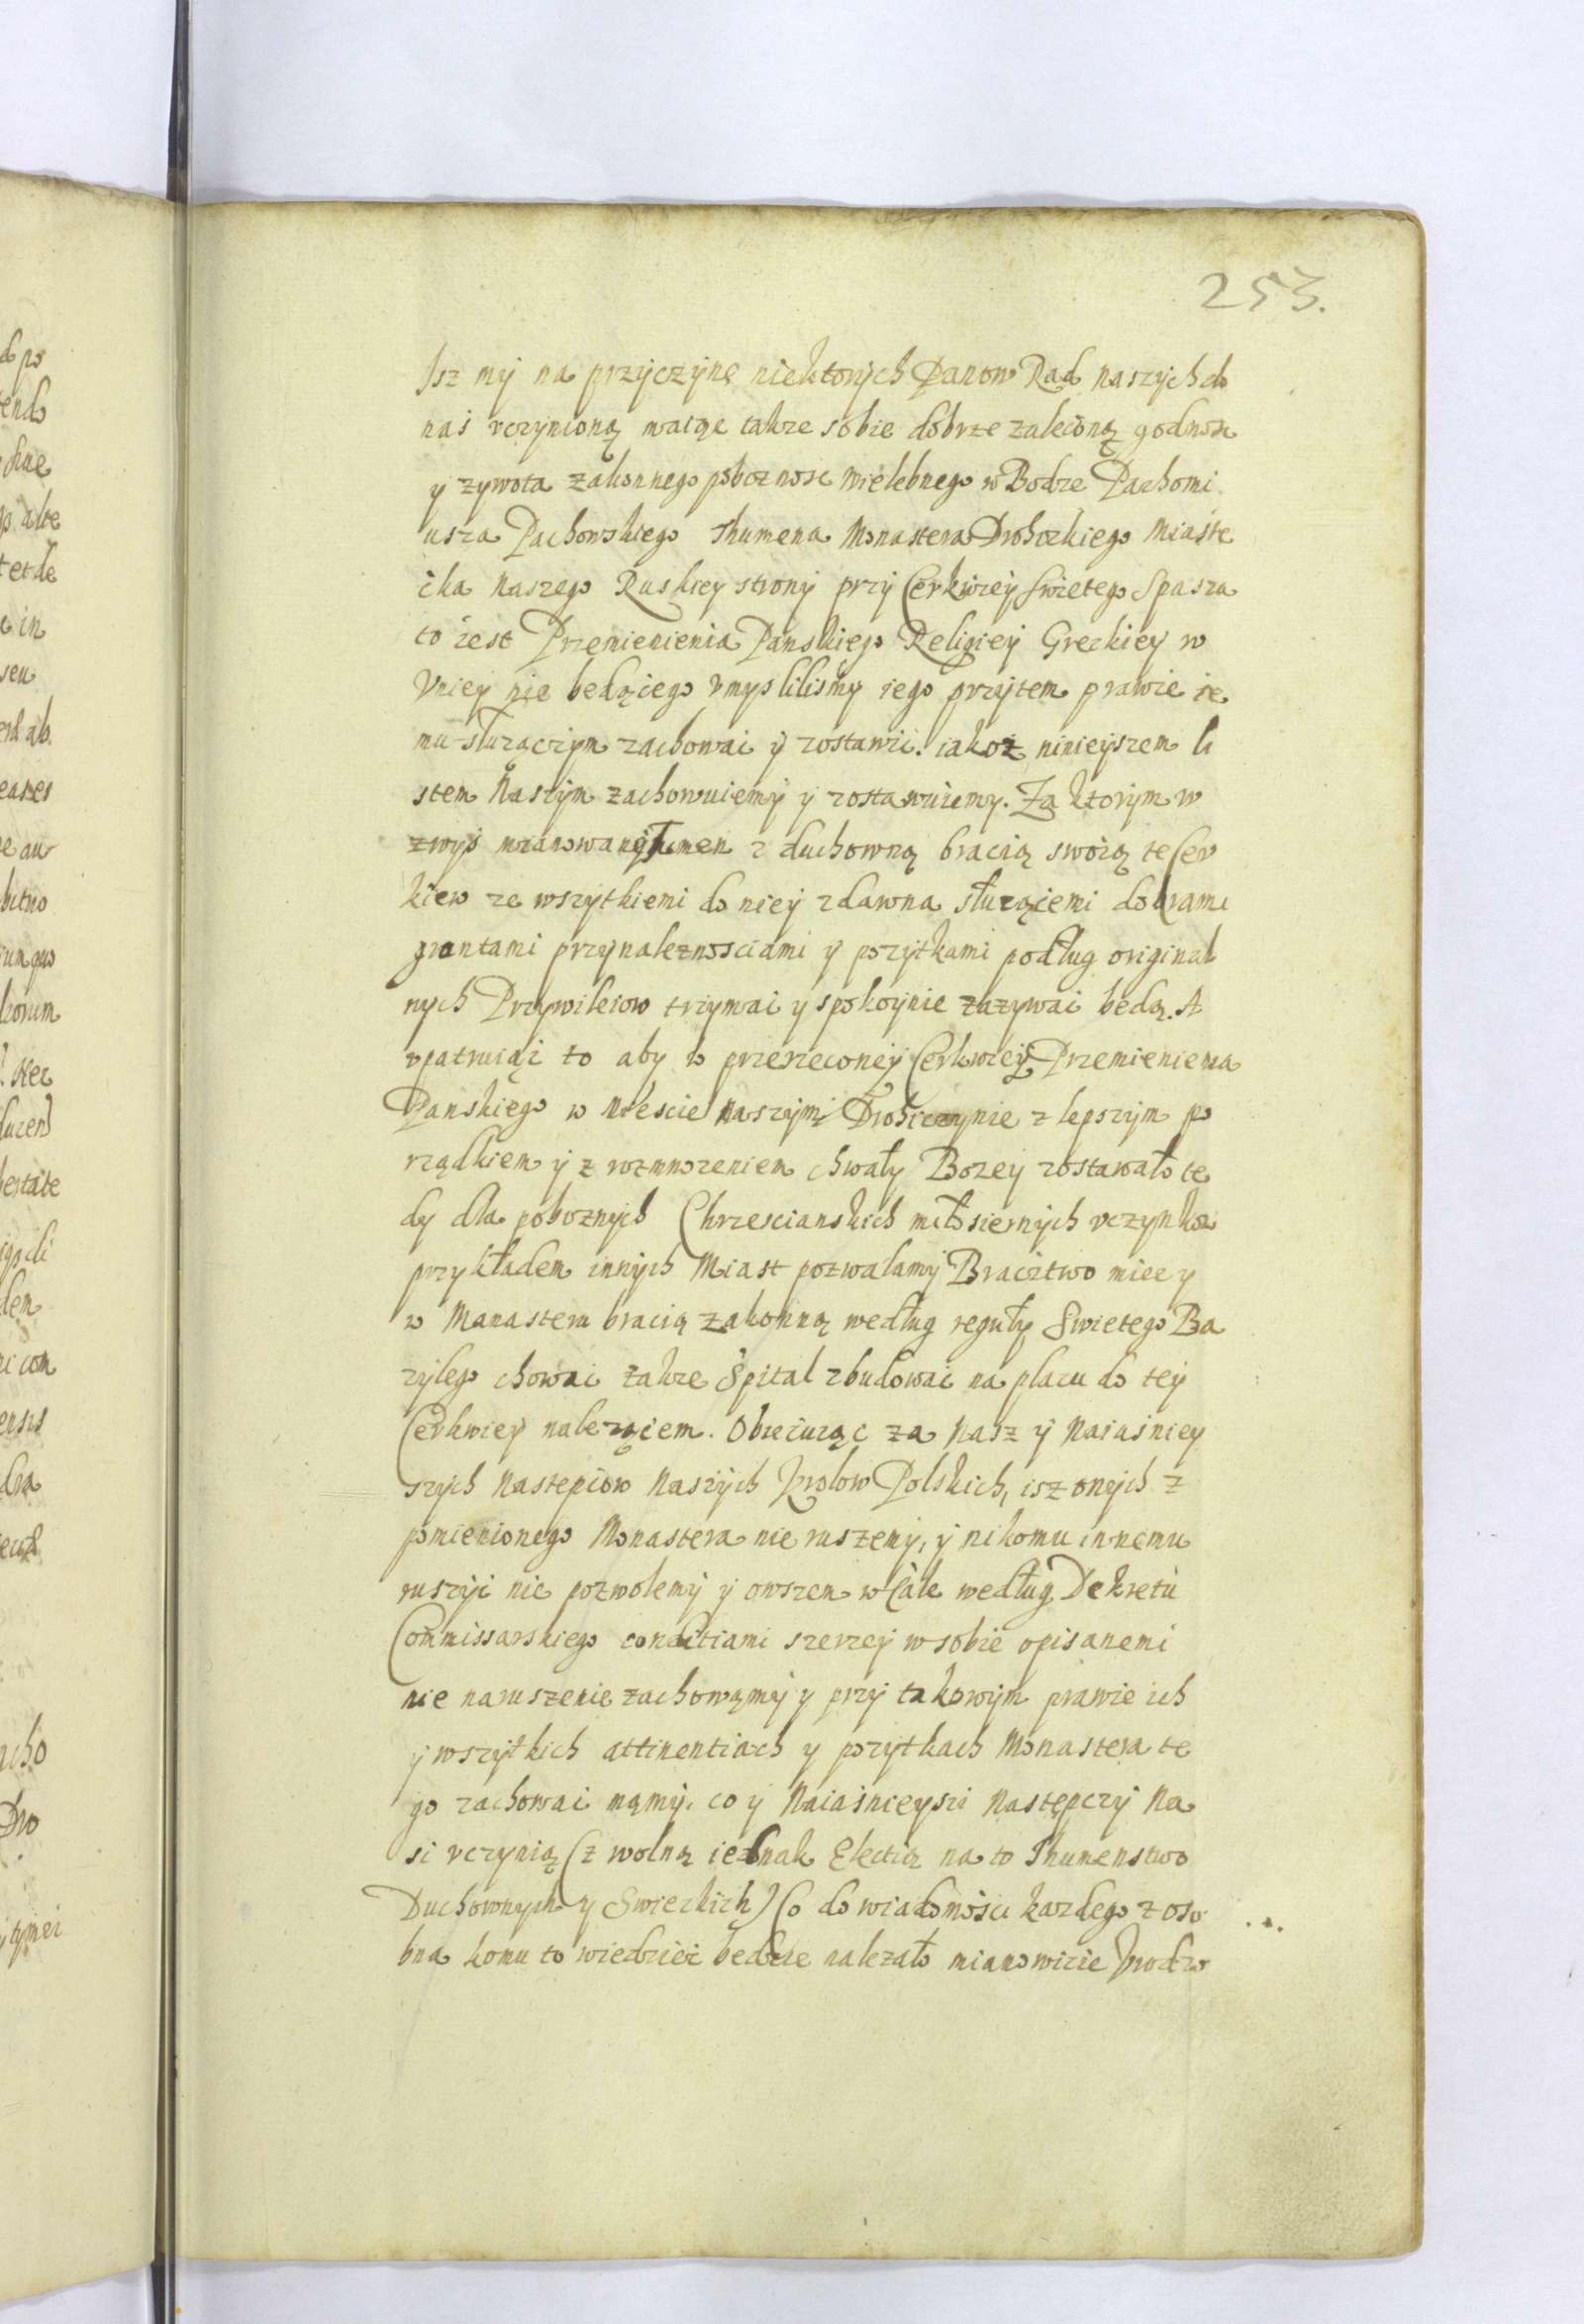 253.
Isz my na przyczynę niektorych Panow Rad naszych do
nas vczynioną maiąc takze sobie dobrze zaleconą godnosc
y zywota zakonnego poboznosc wielebnego w Bodze Pachomi
usza Pachowskiego Ihumena Monastera Drohickiego Miaste
cka naszego Ruskiey strony przy Cerkwiey swietego Spasza
to iest Przemienienia Panskiego Religiey Greckiey w
Vniey nie bedącego vmyslilismy iego przytem prawie ie
mu słuzączym zachowac y zostawic. iakoz ninieyszem li
stem Naszym zachowuiemy y zostawuiemy. Za ktorym w
zwys mianowany Ihumen z duchowną bracią swoią te Cer
kiew ze wszytkiemi do niey zdawna słuzącemi dobrami
gruntami przynaleznosciami y pozytkami podług original
nych Przywileiow trzymac y spokoynie zazywac bedą. A
vpatruiąc to aby w przerzeconey Cerkwiey Przemienienia
Panskiego w Miescie naszym Drohiczynie z lepszym po
rządkiem y z rozmnozeniem chwały Bozey zostawało te
dy dla poboznych Chrzescianskich miłosiernych vczynkow
przykładem innych Miast pozwalamy Bractwo miec y
w Manasteru bracią zakonną według reguły Swietego Ba
zylego chowac takze Spital zbudowac na placu do tey
Cerkwiey nalezącem. Obiecuiąc za Nasz y Naiasniey
szych Nastepcow Naszych Krolow Polskich, isz onych z
pomienionego Monastera nie ruszemy, y nikomu innemu
ruszyc nie pozwolemy y owszem w Cale według Dekretu
Commissarskiego conditiami szerzey w sobie opisanemi
nie naruszenie zachowamy y przy takowym prawie ich
y wszytkich attinentiach y pozytkach Monastera te
go zachowac mamy. co y Naiasnieyszi Następczy Na
si vczynią (z wolną iednak Elecitią na to Ihumenstwo
Duchownych y Swieckich) Co do wiadomosci kazdego z oso
bna komu to wiedziec bedzie nalezało mianowicie Vrodzo